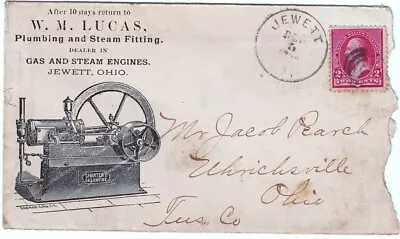 After 10 days return to
W. M. LUCAS,
Plumbing and Steam Fitting.
DEALER IN
GAS AND STEAM ENGINES.
JEWETT, OHIO.
JEWETT
DEC
5
2 2
TWO CENTS
Mr Jacob Pearch
Uhrichsville
Ohio
Tus. Co
GAS ENGINE